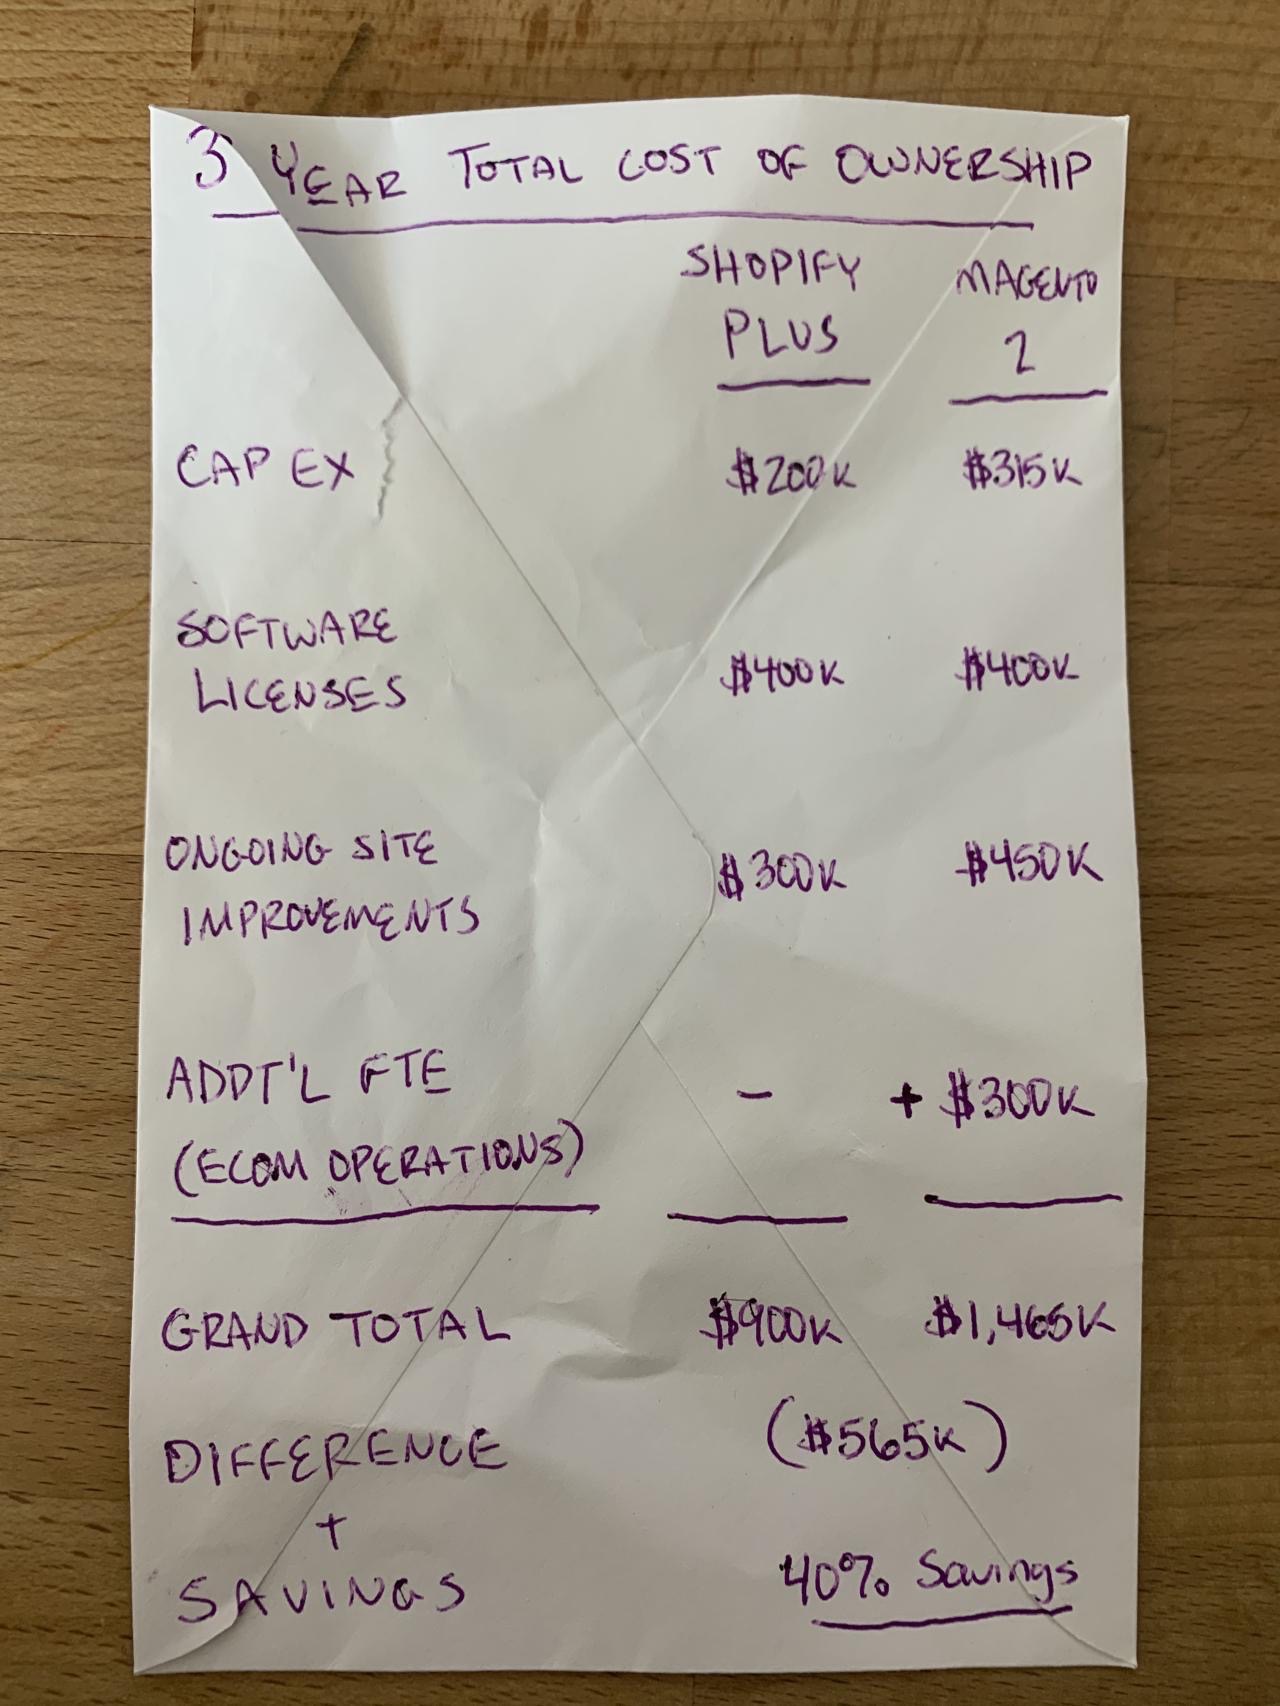 3 YEAR TOTAL COST OF OWNERSHIP
SHOPIFY MAGENTO
PLUS 2
CAP EX $200K $315K
SOFTWARE
LICENSES $400K $400K
ONGOING SITE
IMPROVEMENTS $300K $450K
ADDT'L FTE - + $300K
(ECOM OPERATIONS)
GRAND TOTAL $900K $1,465K
DIFFERENCE ($565K)
+
SAVINGS 40% Savings